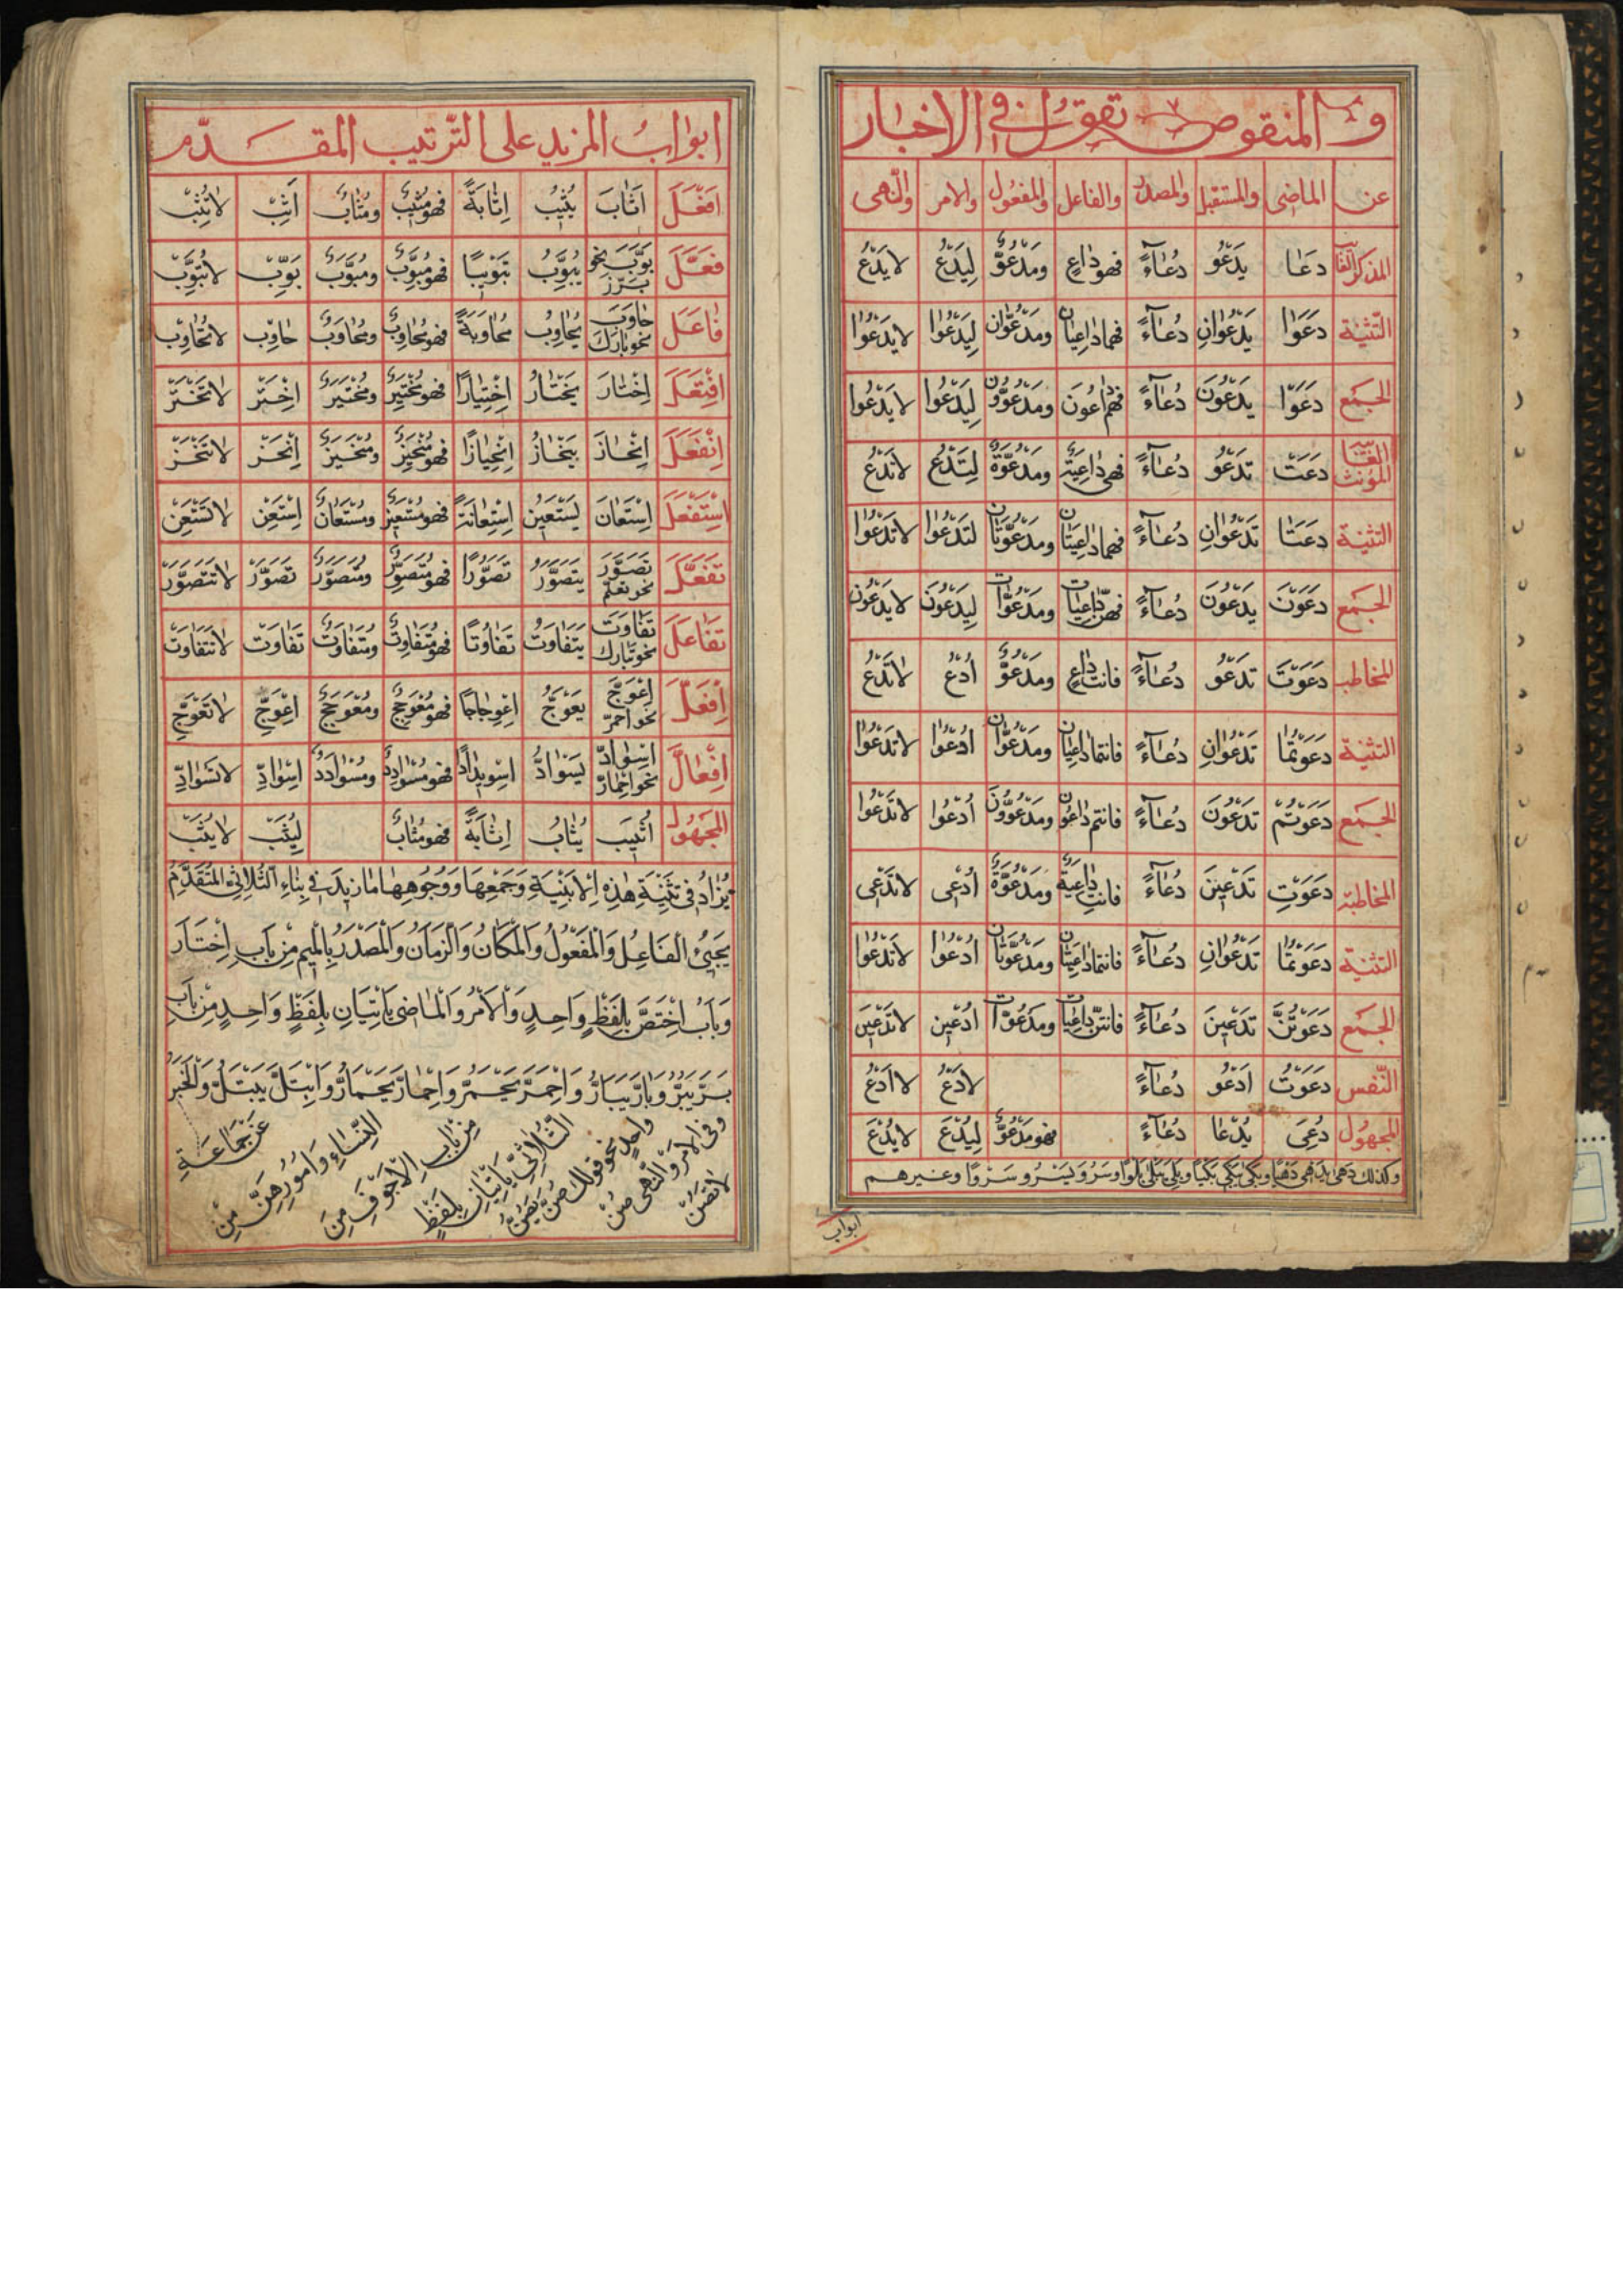 و المنقوص تقول في الاخبار
عن الماضى والمستقبل والمصدر والفاعل والمفعول والامر والنهى
المذكر الغائب دعا يَدْعُو دُعاءً فهو داعٍ ومدعوٌّ لِيَدْعُ لا يَدْعُ
التثنية دَعَوَا يَدْعُوانِ دُعاءً فهما داعيان ومدعوّان لِيَدْعُوا لا يَدْعُوا
الجمع دَعَوْا يَدْعُونَ دُعاءً فهم داعون ومدعوّون لِيَدْعُوا لا يَدْعُوا
الغائبة المؤنث دَعَتْ تَدْعُو دُعاءً فهى داعيةٌ ومدعوّةٌ لِتَدْعُ لا تَدْعُ
التثنية دَعَتا تَدْعُوانِ دُعاءً فهما داعيتان ومدعوّتان لتَدْعُوا لا تَدْعُوا
الجمع دَعَوْنَ يَدْعُونَ دُعاءً فهنّ داعيات ومدعوّات لِيَدْعُونَ لا يَدْعُونَ
المخاطب دَعَوْتَ تَدْعُو دُعاءً فانت داعٍ ومدعوٌّ اُدْعُ لا تَدْعُ
التثنية دَعَوْتُما تَدْعُوانِ دُعاءً فانتما داعيان ومدعوّان اُدْعُوا لا تَدْعُوا
الجمع دَعَوْتُمْ تَدْعُونَ دُعاءً فانتم داعون ومدعوّون اُدْعُوا لا تَدْعُوا
المخاطبة دَعَوْتِ تَدْعِينَ دُعاءً فانتِ داعيةٌ ومدعوّةٌ اُدْعِى لا تَدْعِى
التثنية دَعَوْتُما تَدْعُوانِ دُعاءً فانتما داعيتان ومدعوّتان اُدْعُوا لا تَدْعُوا
الجمع دَعَوْتُنَّ تَدْعِينَ دُعاءً فانتنّ داعيات ومدعوّات اُدْعِين لا تَدْعِين
النفس دَعَوْتُ اَدْعُو دُعاءً لِاَدْعُ لا اَدْعُ
المجهول دُعِىَ يُدْعا دُعاءً فهو مدعوٌّ لِيُدْعَ لا يُدْعَ
وكذلك دهى يدهى دهيا وبكى يبكى بكيا وبلى يبلى بلوا وسرو يسرو سروا وغيرهم
ابواب
ابواب المزيد على الترتيب المقدّم
اَفْعَلَ اَثابَ يُثِيبُ اِثابَةً فهو مُثِيبٌ ومُثابٌ اَثِبْ لا تُثِبْ
فَعَّلَ بَوَّبَ نحو بَرَّزَ يُبَوِّبُ تَبْوِيبًا فهو مُبَوِّبٌ ومُبَوَّبٌ بَوِّبْ لا تُبَوِّبْ
فاعَلَ حاوَبَ نحو بارَكَ يُحاوِبُ مُحاوَبَةً فهو مُحاوِبٌ ومُحاوَبٌ حاوِبْ لا تُحاوِبْ
اِفْتَعَلَ اِخْتارَ يَخْتارُ اِخْتِيارًا فهو مُخْتَيِرٌ ومُخْتَيَرٌ اِخْتَرْ لا تَخْتَرْ
اِنْفَعَلَ اِنْحازَ يَنْحازُ اِنْحِيازًا فهو مُنْحَيِزٌ ومُنْحَيَزٌ اِنْحَزْ لا تَنْحَزْ
اِسْتَفْعَلَ اِسْتَعانَ يَسْتَعِينُ اِسْتِعانَةً فهو مُسْتَعِينٌ ومُسْتَعانٌ اِسْتَعِنْ لا تَسْتَعِنْ
تَفَعَّلَ تَصَوَّرَ نحو تعلّم يَتَصَوَّرُ تَصَوُّرًا فهو مُتَصَوِّرٌ ومُتَصَوَّرٌ تَصَوَّرْ لا تَتَصَوَّرْ
تَفاعَلَ تَفاوَتَ نحو تبارك يَتَفاوَتُ تَفاوُتًا فهو مُتَفاوِتٌ ومُتَفاوَتٌ تَفاوَتْ لا تَتَفاوَتْ
اِفْعَلَّ اِعْوَجَّ نحو احمرّ يَعْوَجُّ اِعْوِجاجًا فهو مُعْوَجِجٌ ومُعْوَجَجٌ اِعْوَجِّ لا تَعْوَجِّ
اِفْعالَّ اِسْوادَّ نحو احمارّ يَسْوادُّ اِسْوِيدادًا فهو مُسْوادِدٌ ومُسْوادَدٌ اِسْوادِّ لا تَسْوادِّ
المجهول اُثِيبَ يُثابُ اِثابَةً فهو مُثابٌ لِيُثَبْ لا يُثَبْ
يُزادُ فى تَثْنِيَةِ هٰذِهِ الاَبْنِيَةِ وَجَمْعِها وَوُجُوهِها ما زِيدَ فى بِناءِ الثُّلاثىِّ المُتَقَدِّمِ
يَجِيئُ الْفاعِلُ وَالْمَفْعُولُ وَالْمَكانُ وَالزَّمانُ وَالْمَصْدَرُ بِالْمِيمِ مِنْ بابِ اِخْتارَ
وَبابُ اِخْتَصَّ بِلَفْظٍ واحِدٍ وَالْاَمْرُ وَالْماضى يَأْتِيانِ بِلَفْظٍ واحِدٍ مِنْ بابِ
بَرَّ يَبَرُّ وَبارَّ يُبارُّ وَاحْمَرَّ يَحْمَرُّ وَاحْمارَّ يَحْمارُّ وَابْتَلَّ يَبْتَلُّ وَالْخَبَرُ
عَنْ جَماعَةِ
النِّساءِ وَاُمُورِهِنَّ مِنْ
مِنْ بابِ الْاَجْوَفِ مِنَ
الثُّلاثىِّ يَأْتِيانِ بِلَفْظٍ
واحِدٍ نحو قولك صُنَّ يَصُنَّ
وفى الامر والنهى صُنْ
لا تَصُنْ